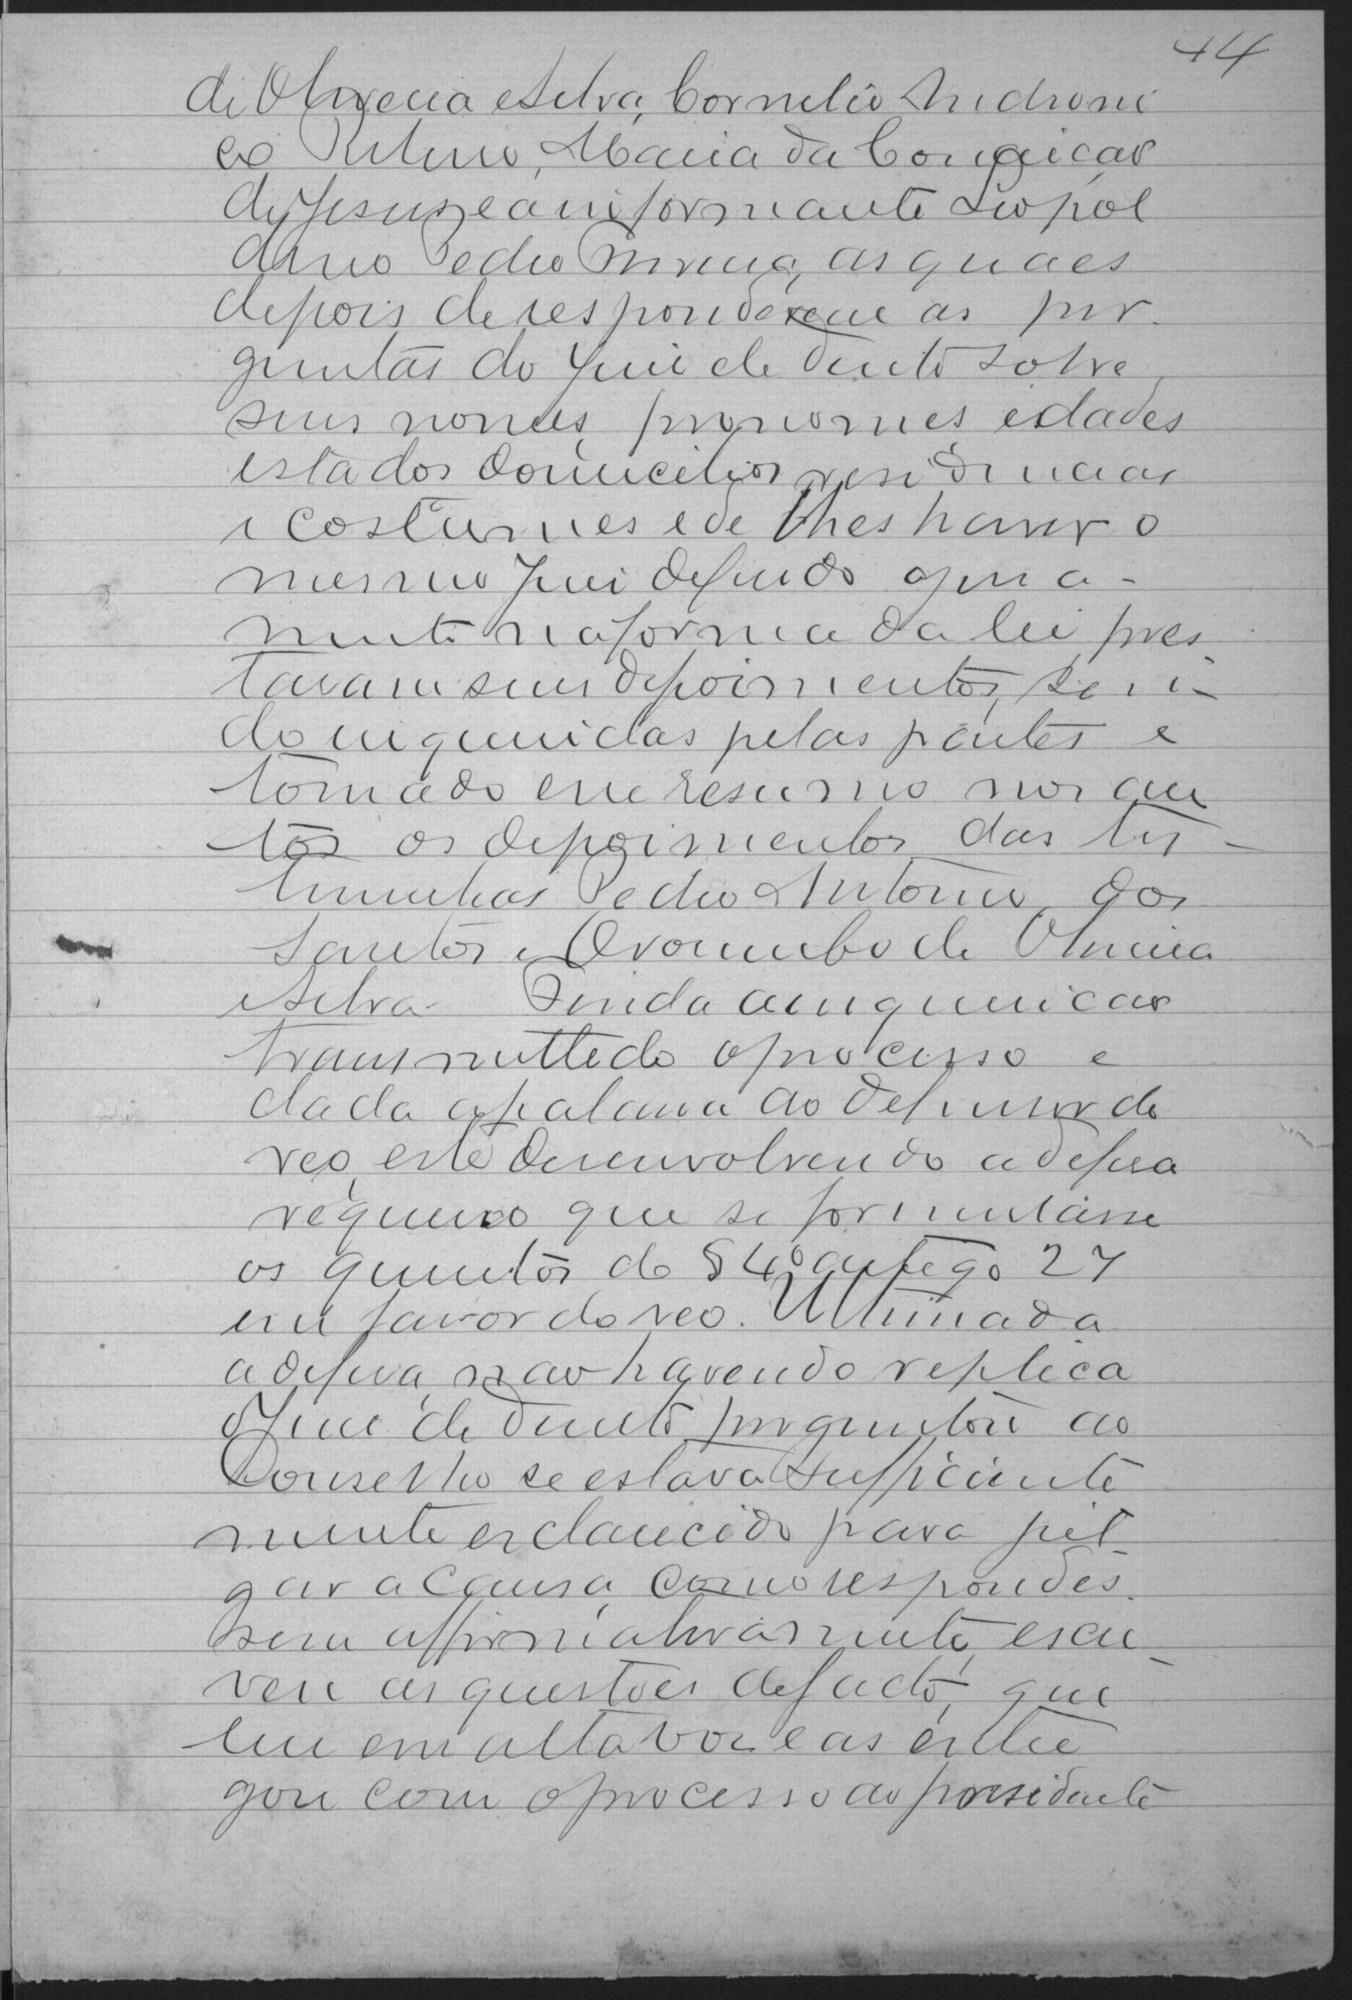 44
de Oliveira e Silva, Cornelio Androni
co Rufino, Maria da Conceição
de Jesus e a informante Leopol
dino Pedro Pereira, as quaes
depois de responderem as per-
guntas do Juiz de Direito sobre
seus nomes, pronomes, edades
estados domicilios, residencias
e costumes e de lhes haver o
mesmo Juiz deferido o jura-
mento na forma da lei pres
taram seus depoimentos, sen-
do inqueridas pelas partes e
tomado em resumo nos au
tos os depoimentos das tes-
temunhas Pedro Antonio dos
Santos e Orozimbo de Oliveira
e Silva. Finda a inquerição
transmittido o processo e
dada a palavra ao defensor do
reo, este desenvolvendo a defesa
requereo que se formulasse
os quesitos do § 4º artigo 27
em favor do reo. Ultimada
a defesa, não havendo replica
o Juiz de Direito perguntou ao
Conselho se estava sufficiente
mente esclarecido para jul
gar a causa, como respondes
sem affirmativamente, escre
veu as questões de facto, que
leu em alta voz e as entre
gou com o processo ao presidente